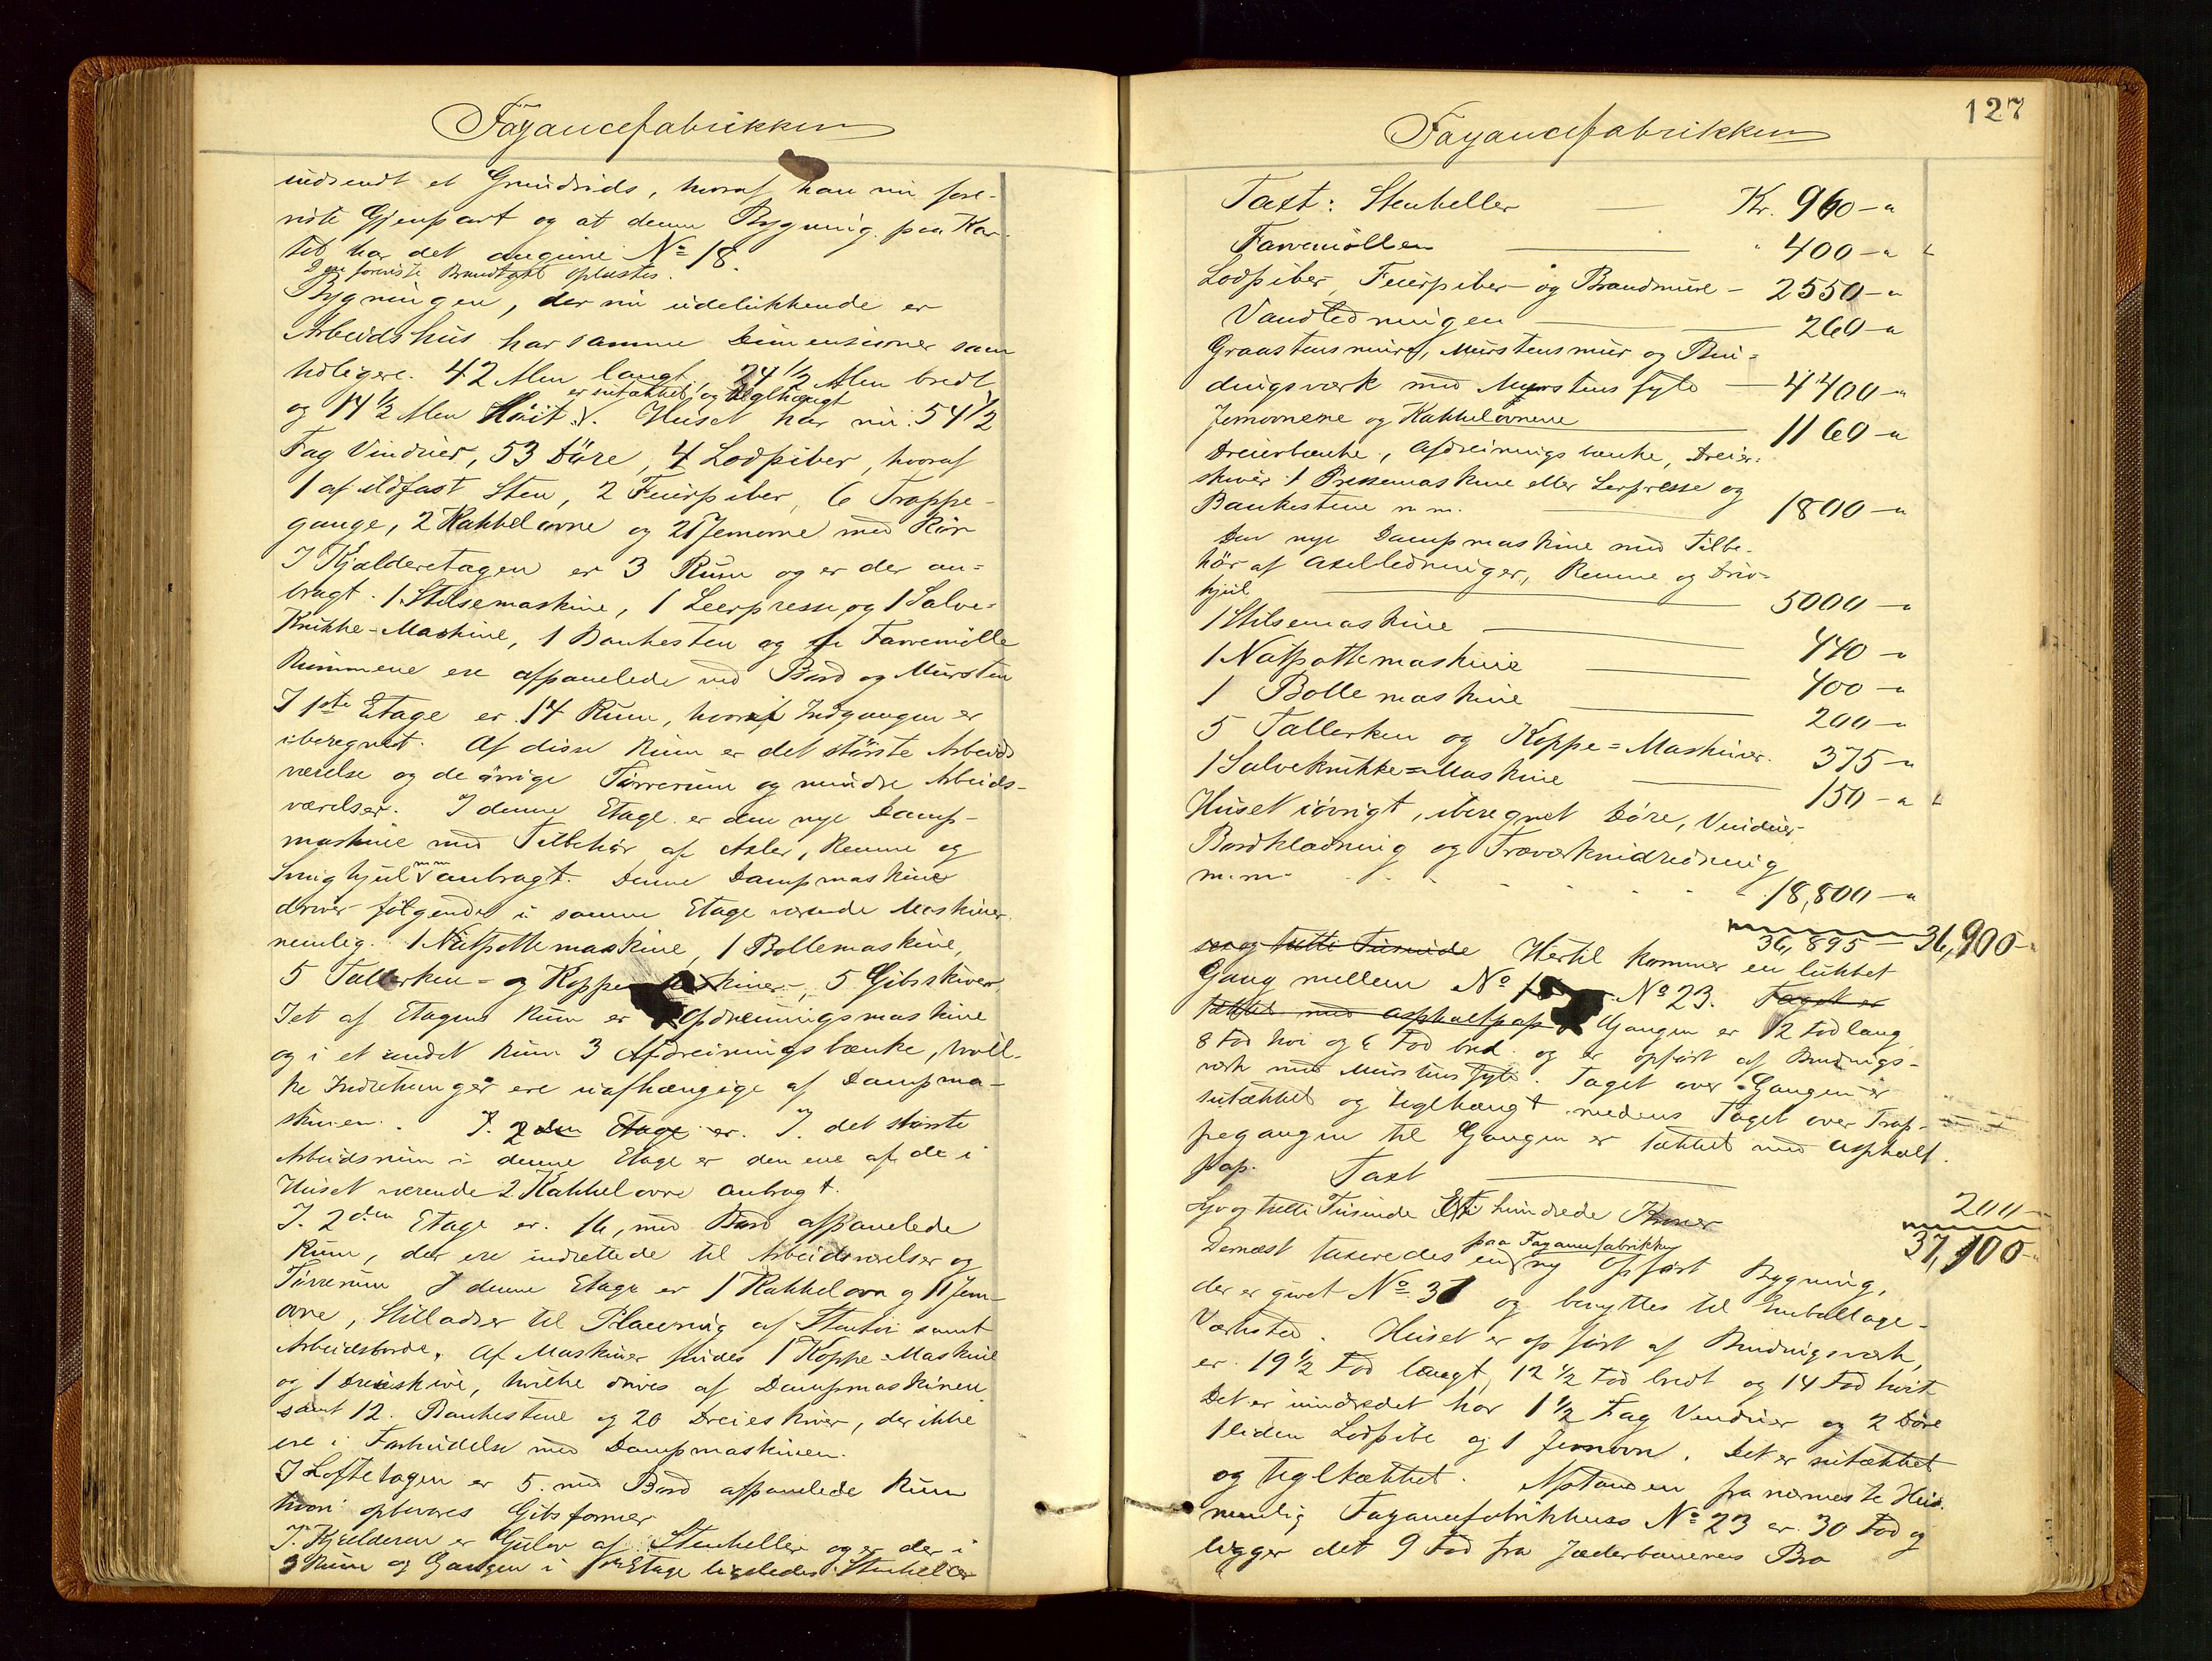 Fayancefabrikken
indsendt et Grundrids, hvoraf han nu fore-
viste Gjenpart og at denne Bygning paa Kar-
tet har det angivne No 18.
Den foreviste Brandtaxt oplæstes.
Bygningen, der nu udelukkende er
Arbeidshus har samme Dimensioner som
tidligere. 42 Alen langt 24 1/2 Alen bredt
er sutækket og teglhængt
og 14 1/2 Alen Höit. Huset har nu 54 1/2
Fag Vinduer, 53 Döre, 4 Lodpiber, hvoraf
1 af ildfast Sten, 2 Feierpiber, 6 Trappe-
gange, 2 Kakkelovne og 21 Jernovne med Rör
I Kjælderetagen er 3 Rum og er der an-
bragt. 1 Stilsemaskine, 1 Leerpresse, og 1 Salve-
Krukke-Maskine, 1 Bankesten og Farvemölle
Rummene ere afpanelede med Bord og Mursten
I 1ste Etage er 14 Rum, hvoraf Indgangen er
iberegnet. Af disse Rum er det störste Arbeids
værelse og de övrige Törrerum og mindre Arbeids-
værelser. I denne Etage er den nye Damp-
maskine med Tilbehör af Axler, Remme og
Svinghjul mm anbragt. Denne Dampmaskine
driver fölgende i samme Etage værende Maskiner
nemlig. 1 Natpottemaskine, 1 Bollemaskine,
5 Tallerken- og Koppemaskiner, 5 Gibsskiver.
I et af Etagens Rum er Afdreiningsmaskine
og i et andet Rum 3 Afdreiningsbænke, hvil-
ke Indretninger ere uafhængige af Dampma-
skinen. I 2den Etage er. I det störste
Arbeidsrum i denne Etage er den ene af de i
Huset værende 2 Kakkelovne anbragt.
I 2den Etage er 16, med Bord afpanelede
Rum, der ere indrettede til Arbeidsværelser og
Törrerum I denne Etage er 1 Kakkelovn og 11 Jern-
ovne, Stilladser til Placering af Stentöi samt
Arbeidsborde. Af Maskiner findes 1 Koppe-Maskine
og 1 Dreieskive, hvilke drives af Dampmaskinen
samt 12 Bankestene og 20 Dreieskiver, der ikke
ere i Forbindelse med Dampmaskinen.
I Loftetagen er 5 med Bord afpanelede Rum
hvori opbevares Gibsformer
I Kjælderen er Gulv af Stenheller og er der i
3 Rum og Gangen i 1ste Etage ligeledes Stenheller
127
Fayancefabrikken
Taxt: Stenheller Kr. 960-"
Farvemöllen " 400-"
Lodpiber, Feierpiber og Brandmure - 2550-"
Vandledningen 260-"
Graastensmure, Murstensmur og Bin-
dingsværk med Murstens fyld - 4400-"
Jernovnene og Kakkelovnene 1160-"
Dreierbænke, Afdreiningsbænke, Dreier-
skiver 1 Pressemaskine eller Lerpresse og
Bankestene m.m. 1800-"
Den nye Dampmaskine med Tilbe-
hör af Axelledninger, Remme og Driv-
hjul 5000-"
1 Stilsemaskine 440-"
1 Natpottemaskine 400-"
1 Bollemaskine 200-"
5 Tallerken og Koppe-Maskiner. 375-"
1 Salvekrukke-Maskine 150-"
Huset iövrigt, iberegnet Döre, Vinduer
Bordklædning og Træværksindredning
m.m. 18,800-"
36,895 - 36,900-"
sex og tretti Tusinde Hertil kommer en lukket
Gang mellem No 18 No 23. Taget er
tækket med Asphaltpap Gangen er 12 Fod lang
8 Fod höi og 6 Fod bred og er opfört af Bindings-
værk med Murstens fyld. Taget over Gangen er
sutækket og teglhængt medens Taget over Trap-
pegangen til Gangen er tækket med Asphalt
pap. Taxt 200
Syv og tretti Tusinde Et hundrede Kroner 37,100-"
Dernæst taxeredes en paa Fayancefabrikken ny opfört Bygning,
der er givet No 31 og benyttes til Emballage-
Værksted. Huset er opfört af Bindingsværk,
er 19 1/2 Fod langt, 12 1/2 Fod bredt og 14 Fod höit
Det er uindredet har 1 1/2 Fag Vinduer og 2 Döre
1 liden Lodpibe og 1 Jernovn. Det er sutækket
og teglhækket. Afstanden fra nærmeste Hus.
nemlig Fayancefabrikhuse No 23 er 30 Fod og
ligger det 9 Fod fra Jæderbanenes Bro